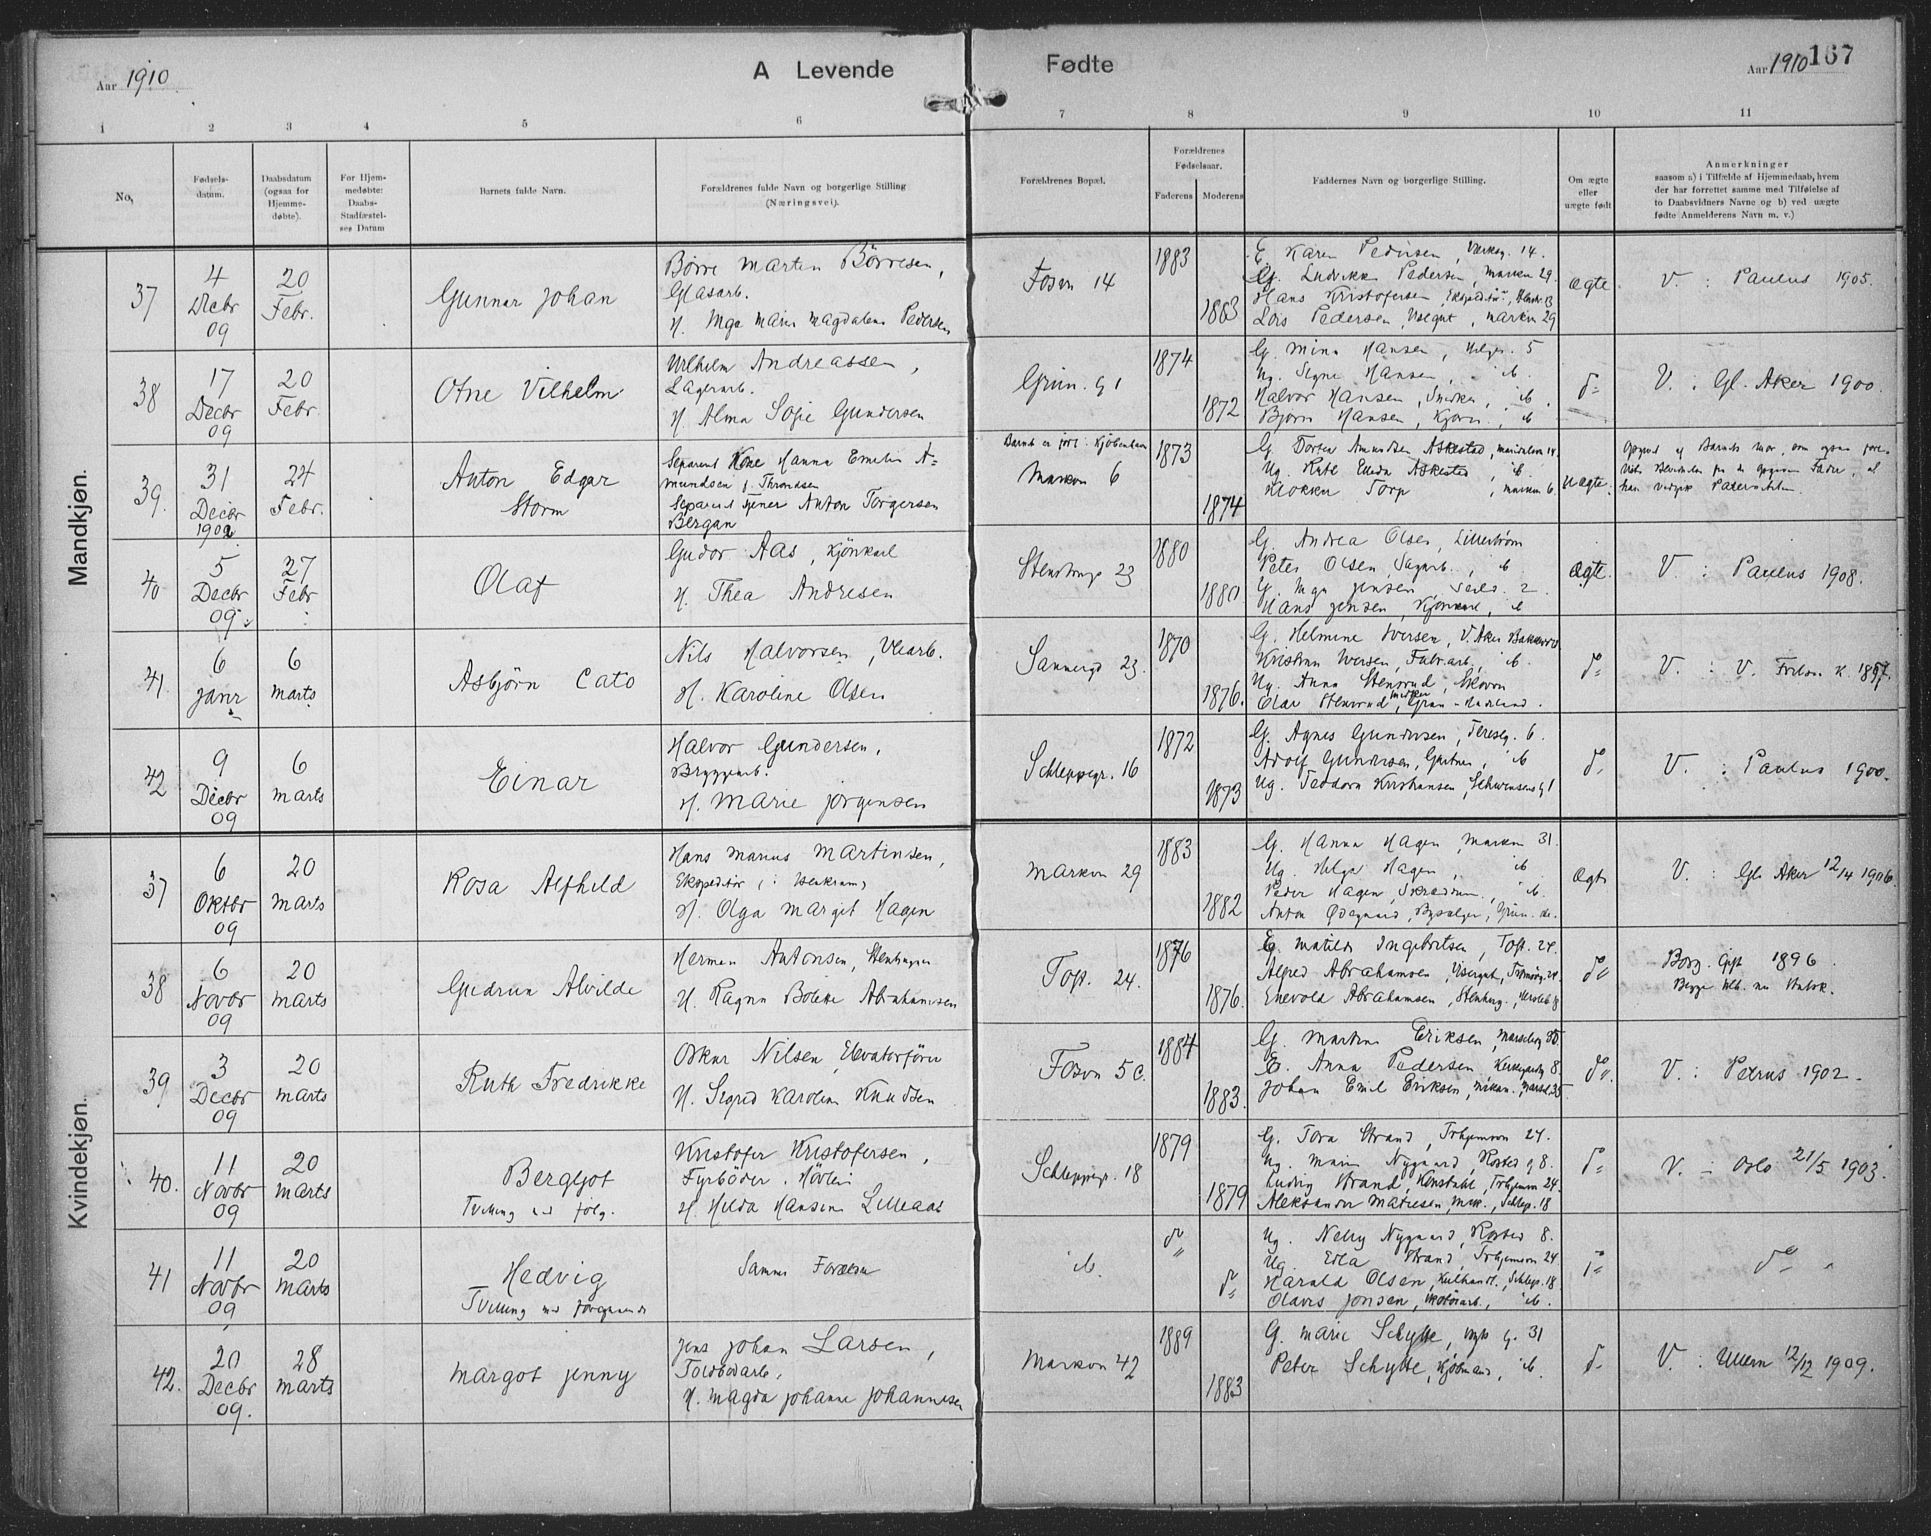 Aar 1910
A Levende
Fødte
Aar 1910
167
1 2 3 4 5 6 7 8 9 10 11
No,
Fødsels-
datum.
Daabsdatum
(ogsaa for
Hjemme-
døbte).
For Hjem-
medøbte:
Daabs-
Stadfæstel-
ses Datum
Barnets fulde Navn.
Forældrenes fulde Navn og borgerlige Stilling
(Næringsvei).
Forældrenes Bopæl.
Forældrenes
Fødselsaar.
Faderens Moderens
Faddernes Navn og borgerlige Stilling.
Om ægte
eller
uægte født
Anmerkninger
saasom a) i Tilfælde af Hjemmedaab, hvem
der har forrettet samme med Tilføielse af
to Daabsvidners Navne og b) ved uægte
fødte Anmelderens Navn m. v.)
Mandkjøn.
37
4
Decbr
09
20
Febr.
Gunnar Johan
Børre Martin Børresen,
Glasarb.
H. Inga Marie Magdalena Pedersen
Fosvn 14
1883
1883
E. Karen Pedersen, 14.
G. Ludvikke Pedersen, Markvn 29.
Hans Kristofersen,
Lars Pedersen, Visergut, Markvn 29
ægte
V. : Paulus 1905.
38
17
Decbr
09
20
Febr.
Arne Vilhelm
Vilhelm Andreassen,
Lagerarb.
H. Alma Sofie Gundersen
Grün. g 1
1874
1872
G. Mina Hansen, Helges. 5
Ug. Signe Hansen, ib.
Halvor Hansen, Snedker, ib.
Bjørn Hansen, ib
do
V. : Gl. Aker 1900.
39.
31
Decbr
190
24
Febr.
Anton Edgar
Storm
Separert Kone Hanna Emilie A=
mundsen f. Throndsen
Separert Tjener Anton Torgersen
Bergan
Barnet er født i Kjøbenhavn
Markvn 6
1873
1874
G. Dortea Amundsen Askestad, Maridalsvn 14.
Ug. Ruth Elleda Askestad, ib.
Klokker Torp, Markvn 6.
uægte.
Opgivet af Barnets Mor, som ogsaa fore-
viste Bevidnelse fra den opgivne Fader, at
han vedgik Paterniteten.
40
5
Decbr
09.
27
Febr
Olaf
Gudor Aas, Kjørekarl
H. Thea Andresen
Stenstrupg 23
1880
1880
G. Andrea Olsen, Lillestrøm
Peter Olsen, Sagarb., ib.
G. Inga Jensen, Seilds. 2.
Hans Jensen, Kjørekarl, ib
ægte.
V. : Paulus 1908.
41.
6
Janr
6
Marts
Asbjørn Cato
Nils Halvorsen, Vævarb.
H. Karoline Olsen
Sannergd 23.
1870
1876.
G. Helmine Iversen, V. Aker
Kristian Iversen, Fabr.arb., ib.
Ug. Anna Stensrud, Skovvn
Olav Stensrud, Snedker, Gran - Hadeland.
do
V. : V. Fredr. K. 1897.
42
9
Decbr
09
6
Marts
Einar
Halvor Gundersen,
Bryggearb.
H. Marie Jørgensen
Schleppegr. 16
1872
1873
G. Agnes Gundersen, Teresesg. 6.
Adolf Gundersen, Gartner, ib
Ug. Teodora Kristiansen, Schwensensg 1
do
V. : Paulus 1900.
Kvindekjøn.
37
6
Oktbr
09
20
Marts
Rosa Alfhild
Hans Marius Martinsen,
Ekspeditør (i Isenkram)
H. Olga Margit Hagen
Markvn 29
1883
1882
G. Hanna Hagen, Markvn 31.
Ug. Helga Hagen, ib.
Peder Hagen, Skræddersv., ib.
Anton Ødegaard, Bysælger,
ægte
V. : Gl. Aker 12/4 1906.
38
6
Novbr
09
20
Marts
Gudrun Alvilde
Herman Antonsen, Stenhugger
H. Ragna Bolette Abrahamsen
Toft. 24.
1876
1876.
G. Matilde Ingebretsen, Toft. 24.
Alfred Abrahamsen, Visergut,
Enevold Abrahamsen, Stenhug., Herslebs 18
do
Borg. Gift 1896.
Begge Medl. av Statsk.
39
3
Decbr
09
20
Marts
Ruth Fredrikke
Oskar Nilsen, Elevatorfører
H. Sigrid Karoline Knudsen
Fosvn 5c.
1884
1883.
G. Martine Eriksen, Marselisg 35.
E. Anna Pedersen, 8.
Johan Emil Eriksen, Mekan., Marsel. 35.
do.
V. : Petrus 1902.
40.
11
Novbr
09
20
Marts
Bergljot
Tvilling med følg.
Kristofer Kristofersen,
Fyrbøder, Høvleri
H. Hilda Hansine Lilleaas
Schleppegr. 18
1879
1879
G. Tora Strand, Trhjemsvn 24.
Ug. Marie Nygaard, Rosted g 8.
Ludvig Strand, Konstabl., Trhjemsvn 24.
Aleksander Matiesen, Mek., Schlep. 18
do
V. : Oslo 21/5 1903.
41
11
Novbr
09
20
Marts
Hedvig
Tvilling med foregaaende
Samme Forældre
ib.
do
do
Ug. Nelly Nygaard, Rosted 8.
Ug. Edla Strand, Trhjemsvn 24
Harald Olsen, Kulhandl., Schlep. 18
Olaves Jonsen, Skotøiarb., ib.
do
do "
42.
20
Decbr
09.
28
Marts
Margot Jenny
Jens Johan Larsen,
Toldbodarb.,
H. Magda Johanne Johannesen
Markvn 42
1889
1883
G. Marie Schytte, g. 31
Peter Schytte, Kjøbmand, ib.
do
V. : Ullern 12/12 1909.